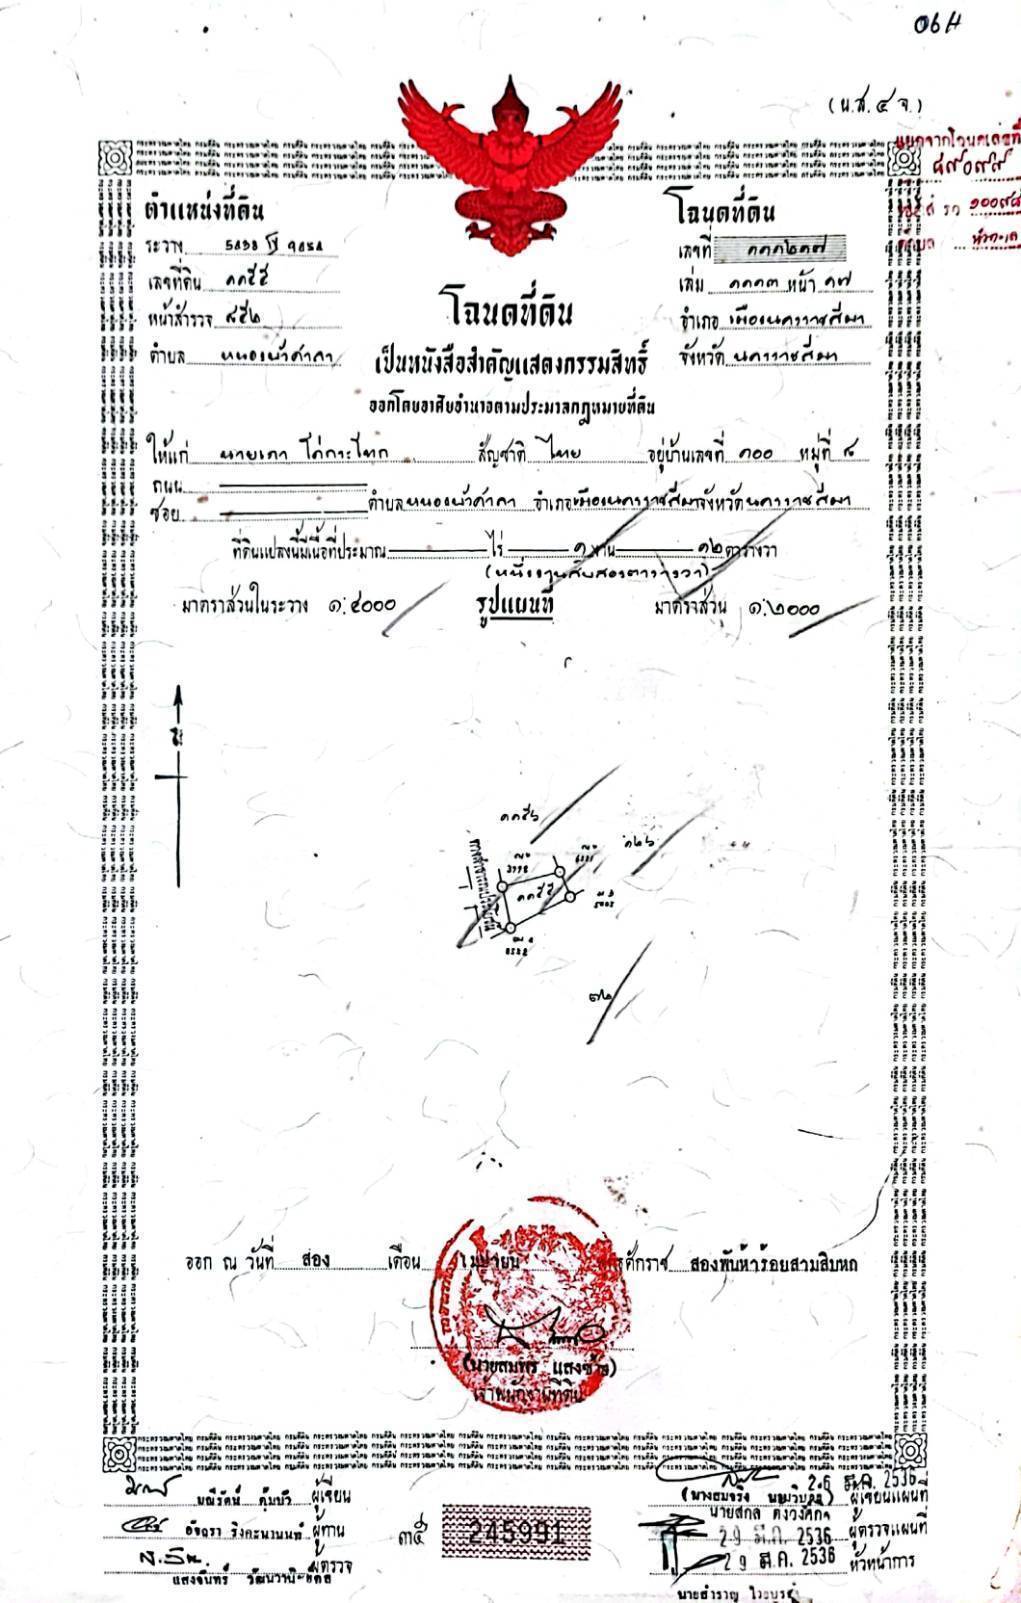 06H
(น.ส.๔ จ.)
แยกจากโฉนดเลขที่
๘๙๐๙๙
ตำแหน่งที่ดิน
โฉนดที่ดิน
ระวาง
เลขที่ ๑๑๑๒๑๗
เลขที่ดิน ๑๑๕๕
เล่ม ๑๑๑๓ หน้า ๑๗
หน้าสำรวจ ๘๕๒
โฉนดที่ดิน
อำเภอ เมืองนครราชสีมา
ตำบล หนองบัวศาลา
เป็นหนังสือสำคัญแสดงกรรมสิทธิ์
จังหวัด นครราชสีมา
ออกโดยอาศัยอำนาจตามประมวลกฎหมายที่ดิน
ให้แก่ นายเภา โค่กระโทก สัญชาติ ไทย อยู่บ้านเลขที่ ๑๐๐ หมู่ที่ ๘
ถนน
ซอย ตำบล หนองบัวศาลา อำเภอ เมืองนครราชสีมา จังหวัด นครราชสีมา
ที่ดินแปลงนี้มีเนื้อที่ประมาณ ไร่ ๑ งาน ๑๒ ตารางวา
(หนึ่งงานสิบสองตารางวา)
มาตราส่วนในระวาง ๑:๔๐๐๐ รูปแผนที่ มาตราส่วน ๑:๒๐๐๐
น
๑๑๕๖
๑๒๖
๑๑๕๕
๗๒
ออก ณ วันที่ สอง เดือน เมษายน พุทธศักราช สองพันห้าร้อยสามสิบหก
(นายสมพร แสงช้าง)
เจ้าพนักงานที่ดิน
26 มี.ค. 2536
มณีรัตน์ คุ้มบัว ผู้เขียน
ผู้เขียนแผนที่
อัจฉรา ริงคะนานนท์ ผู้ทาน
๓๕ 245991
29 มี.ค. 2536 ผู้ตรวจแผนที่
ผู้ตรวจ
29 มี.ค. 2536 หัวหน้าการ